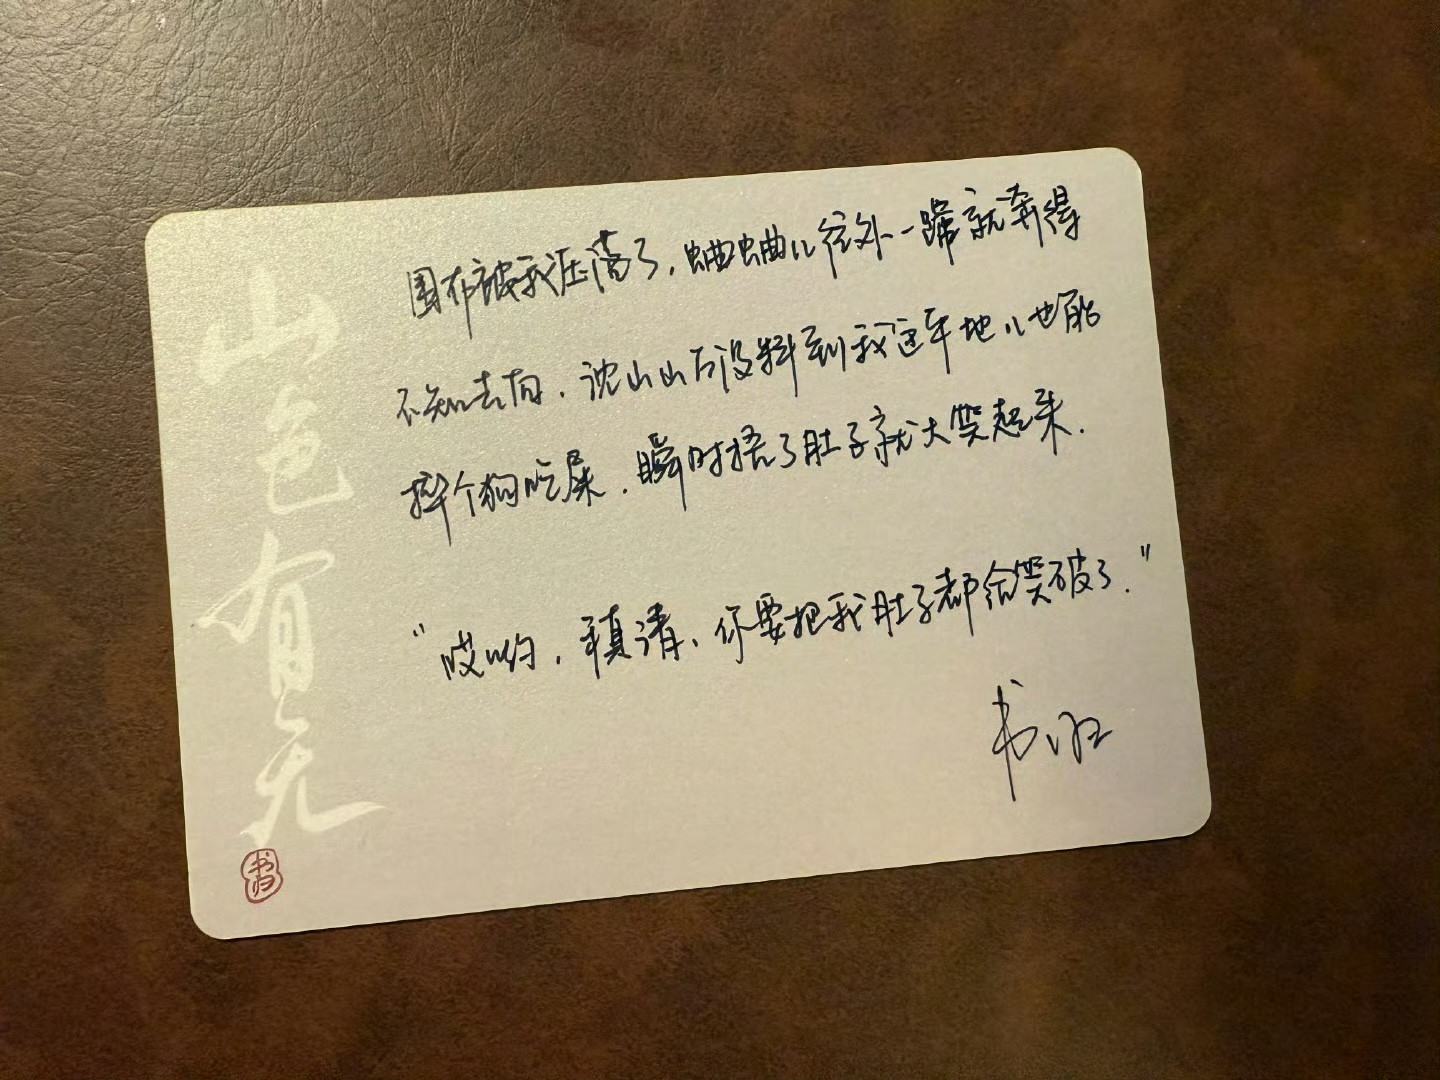 围布被我压落了，蛐蛐儿往外一蹿就奔得
不知去向，沈山山万没料到我这平地儿也能
摔个狗吃屎，瞬时捂了肚子就大笑起来．
“哎哟，稹清，你要把我肚子都给笑破了．”
书归
山色有无
书归